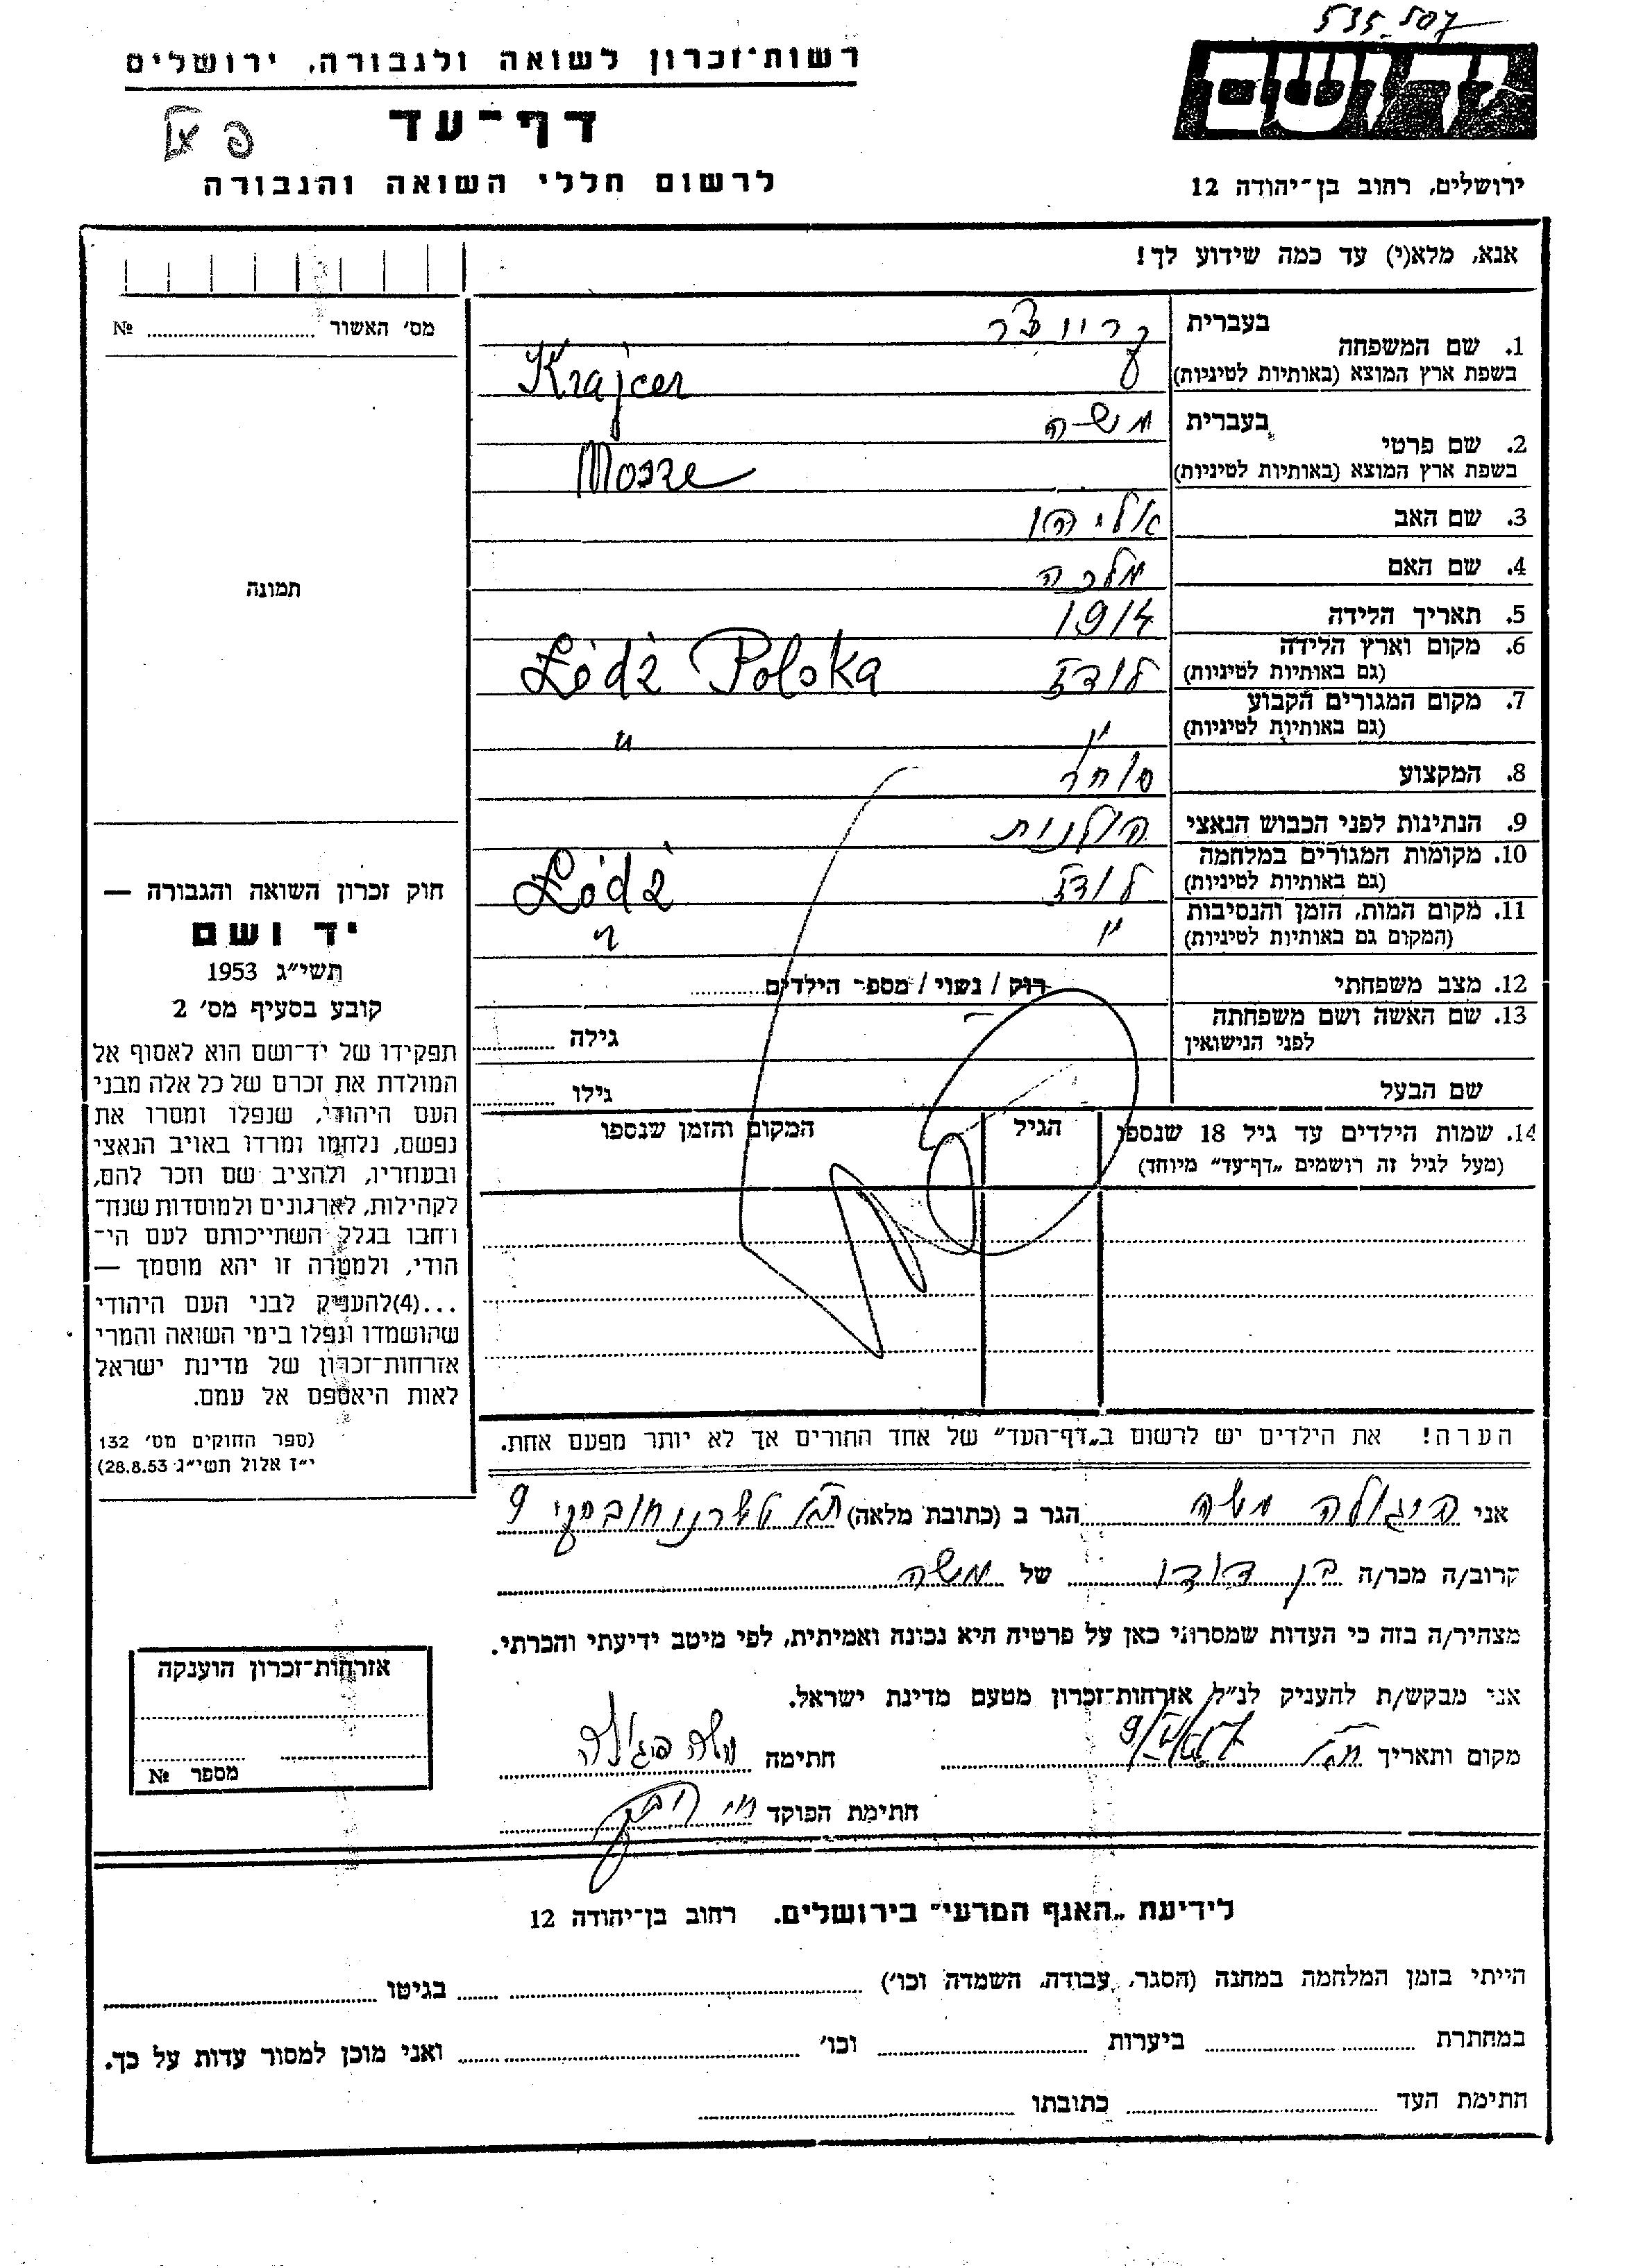 535_507
רשות־זכרון לשואה ולגבורה, ירושלים
יד ושם
דף־עד
לרשום חללי השואה והגבורה
ירושלים, רחוב בן־יהודה 12
אנא, מלא(י) עד כמה שידוע לך!
מס׳ האשור № 
בעברית
1. שם המשפחה
בשפת ארץ המוצא (באותיות לטיניות) Krajcer
בעברית משה
2. שם פרטי
בשפת ארץ המוצא (באותיות לטיניות) Mosze
3. שם האב אליהו
4. שם האם מלכה
5. תאריך הלידה 1914
6. מקום וארץ הלידה
(גם באותיות לטיניות) לודז Łódź Polska
7. מקום המגורים הקבוע
(גם באותיות לטיניות) " "
8. המקצוע סוחר
9. הנתינות לפני הכבוש הנאצי פולנית
10. מקומות המגורים במלחמה
(גם באותיות לטיניות) לודז Łódź
11. מקום המות, הזמן והנסיבות
(המקום גם באותיות לטיניות) " "
12. מצב משפחתי רוק / נשוי / מספר הילדים
13. שם האשה ושם משפחתה
לפני הנישואין גילה
שם הבעל גילו
14. שמות הילדים עד גיל 18 שנספו הגיל המקום והזמן שנספו
(מעל לגיל זה רושמים „דף־עד״ מיוחד)
הערה! את הילדים יש לרשום ב„דף־העד״ של אחד החורים אך לא יותר מפעם אחת.
תמונה
חוק זכרון השואה והגבורה —
יד ושם
תשי״ג 1953
קובע בסעיף מס׳ 2
תפקידו של יד־ושם הוא לאסוף אל
המולדת את זכרם של כל אלה מבני
העם היהודי, שנפלו ומסרו את
נפשם, נלחמו ומרדו באויב הנאצי
ובעוזריו, ולהציב שם וזכר להם,
לקהילות, לארגונים ולמוסדות שנח־
רחבו בגלל השתייכותם לעם הי־
הודי, ולמטרה זו יהא מוסמך —
...(4)להעניק לבני העם היהודי
שהושמדו ונפלו בימי השואה והמרי
אזרחות־זכרון של מדינת ישראל
לאות היאספם אל עמם.
(ספר החוקים מס׳ 132
י״ז אלול תשי״ג 28.8.53)
אני משה הגר ב (כתובת מלאה) 9
קרוב/ה מכר/ה בן דודו של משה
מצהיר/ה בזה כי העדות שמסרתי כאן על פרטיה היא נכונה ואמיתית, לפי מיטב ידיעתי והכרתי.
אני מבקש/ת להעניק לנ״ל אזרחות־זכרון מטעם מדינת ישראל.
מקום ותאריך חתימה משה
חתימת הפוקד
אזרחות־זכרון הוענקה
מספר №
לידיעת „האגף המדעי״ בירושלים. רחוב בן־יהודה 12
הייתי בזמן המלחמה במחנה (הסגר, עבודה, השמדה וכו׳) בגיטו
במחתרת ביערות וכו׳ ואני מוכן למסור עדות על כך.
חתימת העד כתובתו